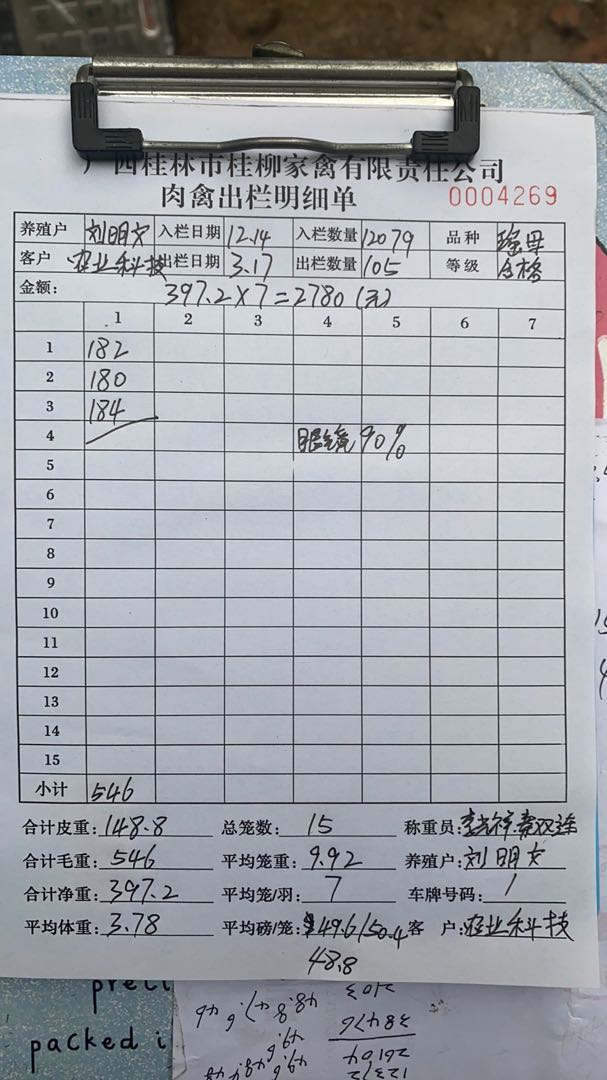 广西桂林市桂柳家禽有限责任公司
肉禽出栏明细单 0004269
养殖户 刘明文 入栏日期 12.14 入栏数量 12079 品种 瑶母
客户 农业科技 出栏日期 3.17 出栏数量 105 等级 合格
金额: 397.2×7=2780(元)
1 2 3 4 5 6 7
1 182
2 180
3 184
4 眼镜90%
5
6
7
8
9
10
11
12
13
14
15
小计 546
合计皮重: 148.8 总笼数: 15 称重员:
合计毛重: 546 平均笼重: 9.92 养殖户: 刘明文
合计净重: 397.2 平均笼/羽: 7 车牌号码: /
平均体重: 3.78 平均磅/笼: 49.6/50.4 客户: 农业科技
48.8
packed i